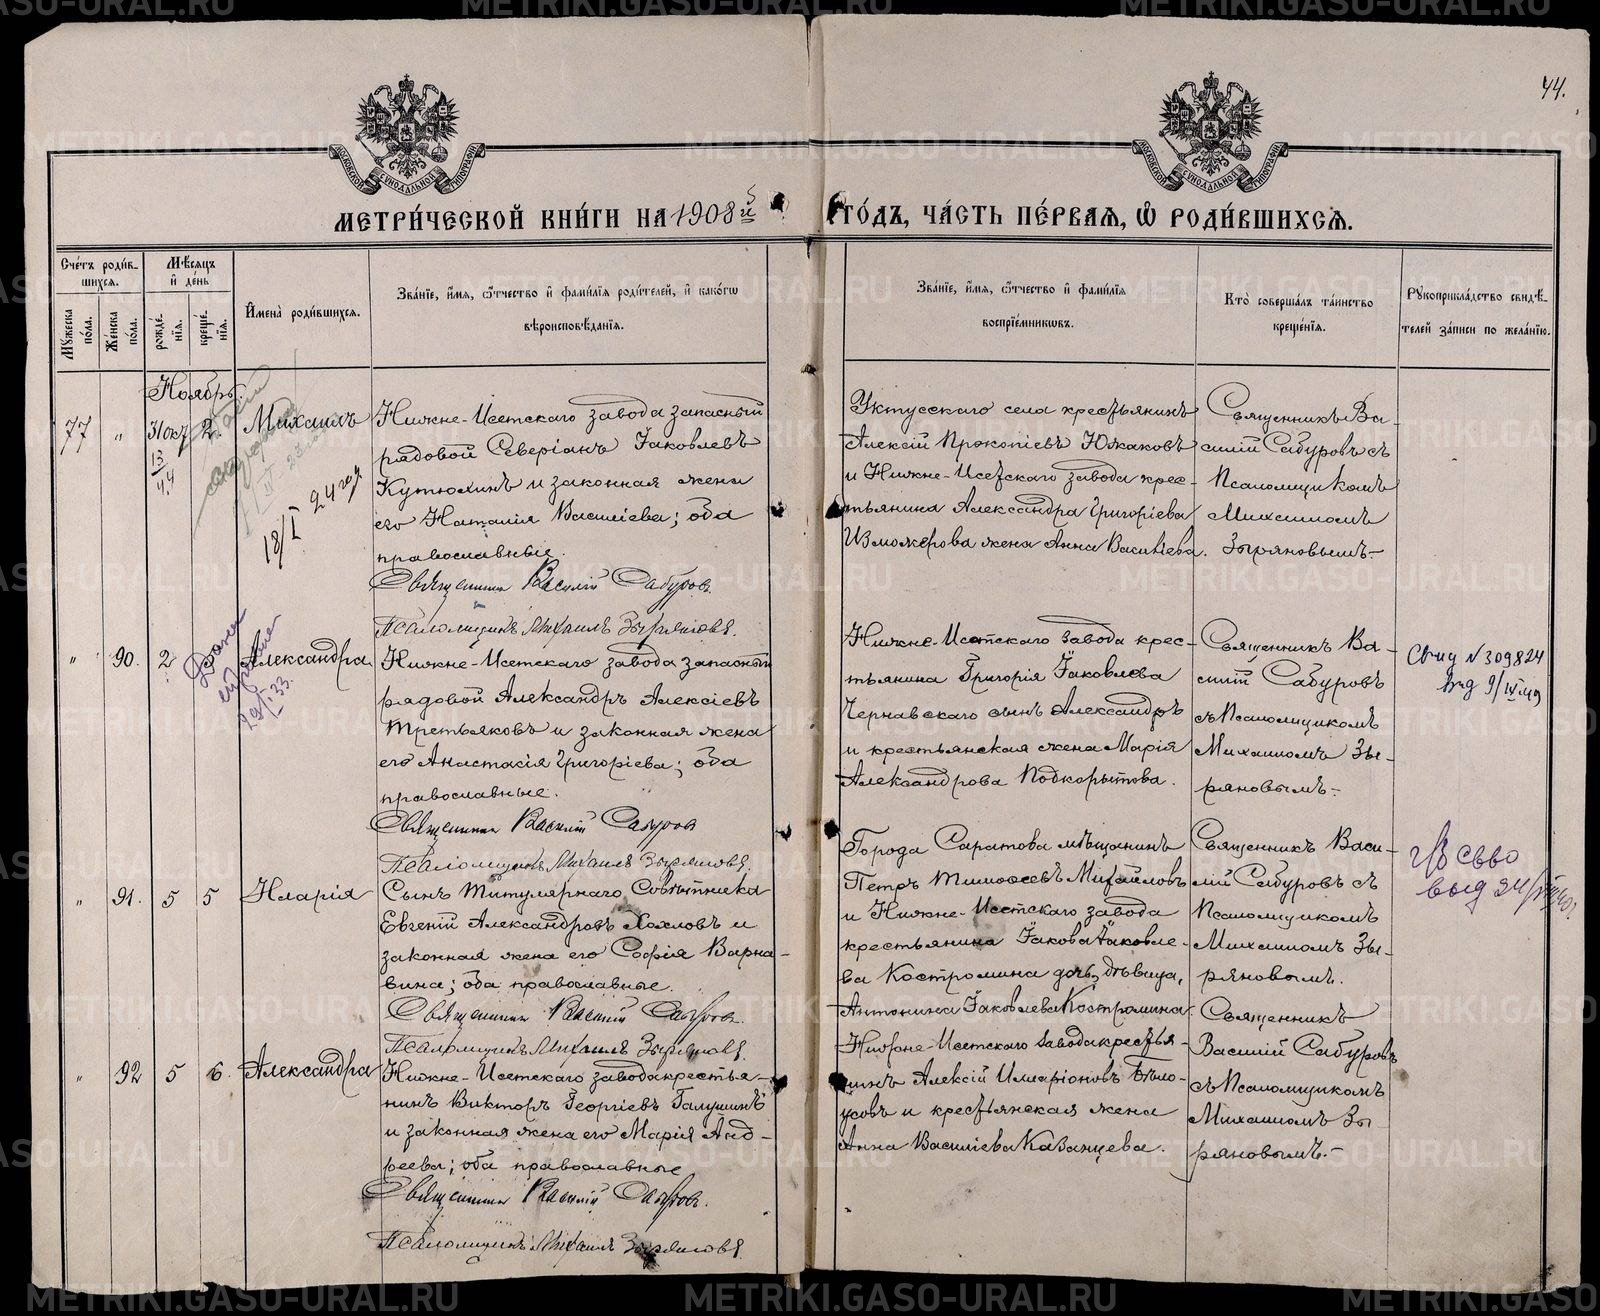 44.
МОСКОВСКОЙ СУНОДАЛЬНОЙ ТИПОГРАФІИ
МОСКОВСКОЙ СУНОДАЛЬНОЙ ТИПОГРАФІИ
МЕТРИ́ЧЕСКОЙ КНИ́ГИ НА 1908й ГО́ДЪ, ЧА́СТЬ ПЕ́РВАѦ, Ѡ҆ РОДИ́ВШИХСѦ.
Сче́тъ роди́в-
шихсѧ.
Мꙋ́жеска по́ла.
Же́нска по́ла.
Мѣ́сѧцъ
и҆ де́нь
рожде́-
нїѧ.
креще́-
нїѧ.
И҆мена̀ роди́вшихсѧ.
Зва́нїе, и҆́мѧ, ѻ҆́тчество и҆ фами́лїѧ роди́телей, и҆ како́гѡ
вѣроисповѣ́данїѧ.
Зва́нїе, и҆́мѧ, ѻ҆́тчество и҆ фами́лїѧ
воспрїе́мникѡвъ.
Кто̀ соверша́лъ та́инство
креще́нїѧ.
Рꙋкоприкла́дство свидѣ́-
телей за́писи по жела́нїю.
Ноябрь.
77 " 31 окт 2. Михаилъ
13
4,4
18/I 24 год
Нижне-Исетскаго завода запасный
рядовой Северіанъ Іаковлевъ
Кутюхинъ и законная жена
его Наталія Василіева; оба
православные.
Священникъ Василій Сабуровъ.
Псаломщикъ Михаилъ Зыряновъ.
Уктусскаго села крестьянинъ
Алексій Прокопіевъ Южаковъ
и Нижне-Исетскаго завода крес-
тьянина Александра Григоріева
Изможерова жена Анна Василіева.
Священникъ Ва-
силій Сабуровъ съ
Псаломщикомъ
Михаиломъ
Зыряновымъ-
" 90. 2 Александра
29/I 33.
Нижне-Исетскаго завода запасный
рядовой Александръ Алексіевъ
Третьяковъ и законная жена
его Анастасія Григоріева; оба
православные.
Священникъ Василій Сабуровъ
Псаломщикъ Михаилъ Зыряновъ.
Нижне-Исетскаго завода крес-
тьянина Григорія Іаковлева
Чернавскаго сынъ Александръ
и крестьянская жена Марія
Александрова Подкорытова.
Священникъ Ва-
силій Сабуровъ
съ Псаломщикомъ
Михаиломъ Зы-
ряновымъ-
Свид N 309824
выд 9/IV 49
" 91. 5 5 Иларія
Сынъ Титулярнаго Совѣтника
Евгеній Александровъ Хохловъ и
законная жена его Софія Варна-
вина; оба православные.
Священникъ Василій Сабуровъ.
Псаломщикъ Михаилъ Зыряновъ.
Города Саратова мѣщанинъ
Петръ Тимоѳеевъ Михайловъ
и Нижне-Исетскаго завода
крестьянина Іакова Іаковле-
ва Костромина дочь, дѣвица,
Антонина Іаковлева Костромина
Священникъ Васи-
лій Сабуровъ съ
Псаломщикомъ
Михаиломъ Зы-
ряновымъ.
св-во
выд 24/
" 92 5 6. Александра
Нижне-Исетскаго завода крестья-
нинъ Викторъ Георгіевъ Галушинъ
и законная жена его Марія Анд-
реева; оба православные
Священникъ Василій Сабуровъ.
Псаломщикъ Михаилъ Зыряновъ
Нижне-Исетскаго завода крестья-
нинъ Алексій Илларіоновъ Бѣло-
усовъ и крестьянская жена
Анна Василіева Казанцева.
Священникъ
Василій Сабуровъ
съ Псаломщикомъ
Михаиломъ Зы-
ряновымъ.-
METRIKI.GASO-URAL.RU